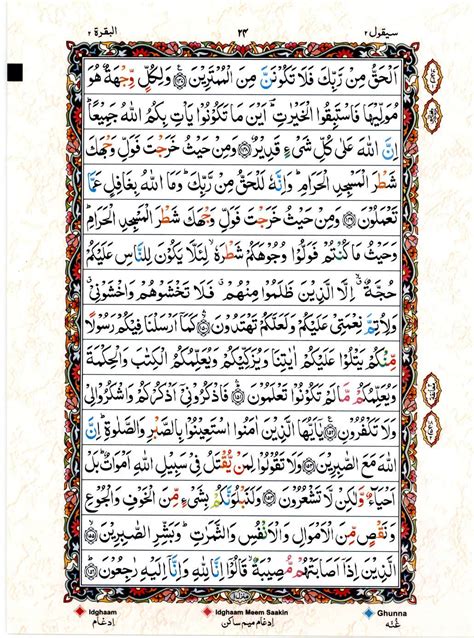 سيقول ٢ ٢٤ البقرة ٢
اَلْحَقُّ مِنْ رَّبِّكَ فَلَا تَكُوْنَنَّ مِنَ الْمُمْتَرِيْنَ ﴿١٤٧﴾ وَلِكُلٍّ وِّجْهَةٌ هُوَ
مُوَلِّيْهَا فَاسْتَبِقُوا الْخَيْرٰتِ ؕ اَيْنَ مَا تَكُوْنُوْا يَاْتِ بِكُمُ اللّٰهُ جَمِيْعًا ؕ
اِنَّ اللّٰهَ عَلٰى كُلِّ شَىْءٍ قَدِيْرٌ ﴿١٤٨﴾ وَمِنْ حَيْثُ خَرَجْتَ فَوَلِّ وَجْهَكَ
شَطْرَ الْمَسْجِدِ الْحَرَامِ ؕ وَاِنَّهٗ لَلْحَقُّ مِنْ رَّبِّكَ ؕ وَمَا اللّٰهُ بِغَافِلٍ عَمَّا
تَعْمَلُوْنَ ﴿١٤٩﴾ وَمِنْ حَيْثُ خَرَجْتَ فَوَلِّ وَجْهَكَ شَطْرَ الْمَسْجِدِ الْحَرَامِ ؕ
وَحَيْثُ مَا كُنْتُمْ فَوَلُّوْا وُجُوْهَكُمْ شَطْرَهٗ ۙ لِئَلَّا يَكُوْنَ لِلنَّاسِ عَلَيْكُمْ
حُجَّةٌ ۙ اِلَّا الَّذِيْنَ ظَلَمُوْا مِنْهُمْ ۗ فَلَا تَخْشَوْهُمْ وَاخْشَوْنِيْ ۗ
وَلِاُتِمَّ نِعْمَتِيْ عَلَيْكُمْ وَلَعَلَّكُمْ تَهْتَدُوْنَ ﴿١٥٠﴾ كَمَآ اَرْسَلْنَا فِيْكُمْ رَسُوْلًا
مِّنْكُمْ يَتْلُوْا عَلَيْكُمْ اٰيٰتِنَا وَيُزَكِّيْكُمْ وَيُعَلِّمُكُمُ الْكِتٰبَ وَالْحِكْمَةَ
وَيُعَلِّمُكُمْ مَّا لَمْ تَكُوْنُوْا تَعْلَمُوْنَ ﴿١٥١﴾ فَاذْكُرُوْنِيْٓ اَذْكُرْكُمْ وَاشْكُرُوْا لِيْ
وَلَا تَكْفُرُوْنِ ﴿١٥٢﴾ يٰٓاَيُّهَا الَّذِيْنَ اٰمَنُوا اسْتَعِيْنُوْا بِالصَّبْرِ وَالصَّلٰوةِ ؕ اِنَّ
اللّٰهَ مَعَ الصّٰبِرِيْنَ ﴿١٥٣﴾ وَلَا تَقُوْلُوْا لِمَنْ يُّقْتَلُ فِيْ سَبِيْلِ اللّٰهِ اَمْوَاتٌ ؕ بَلْ
اَحْيَآءٌ وَّلٰكِنْ لَّا تَشْعُرُوْنَ ﴿١٥٤﴾ وَلَنَبْلُوَنَّكُمْ بِشَىْءٍ مِّنَ الْخَوْفِ وَالْجُوْعِ
وَنَقْصٍ مِّنَ الْاَمْوَالِ وَالْاَنْفُسِ وَالثَّمَرٰتِ ؕ وَبَشِّرِ الصّٰبِرِيْنَ ﴿١٥٥﴾
الَّذِيْنَ اِذَآ اَصَابَتْهُمْ مُّصِيْبَةٌ ۙ قَالُوْٓا اِنَّا لِلّٰهِ وَاِنَّآ اِلَيْهِ رٰجِعُوْنَ ﴿١٥٦﴾
Idghaam Idghaam Meem Saakin Ghunna
ادغام ادغام میم ساکن غنہ